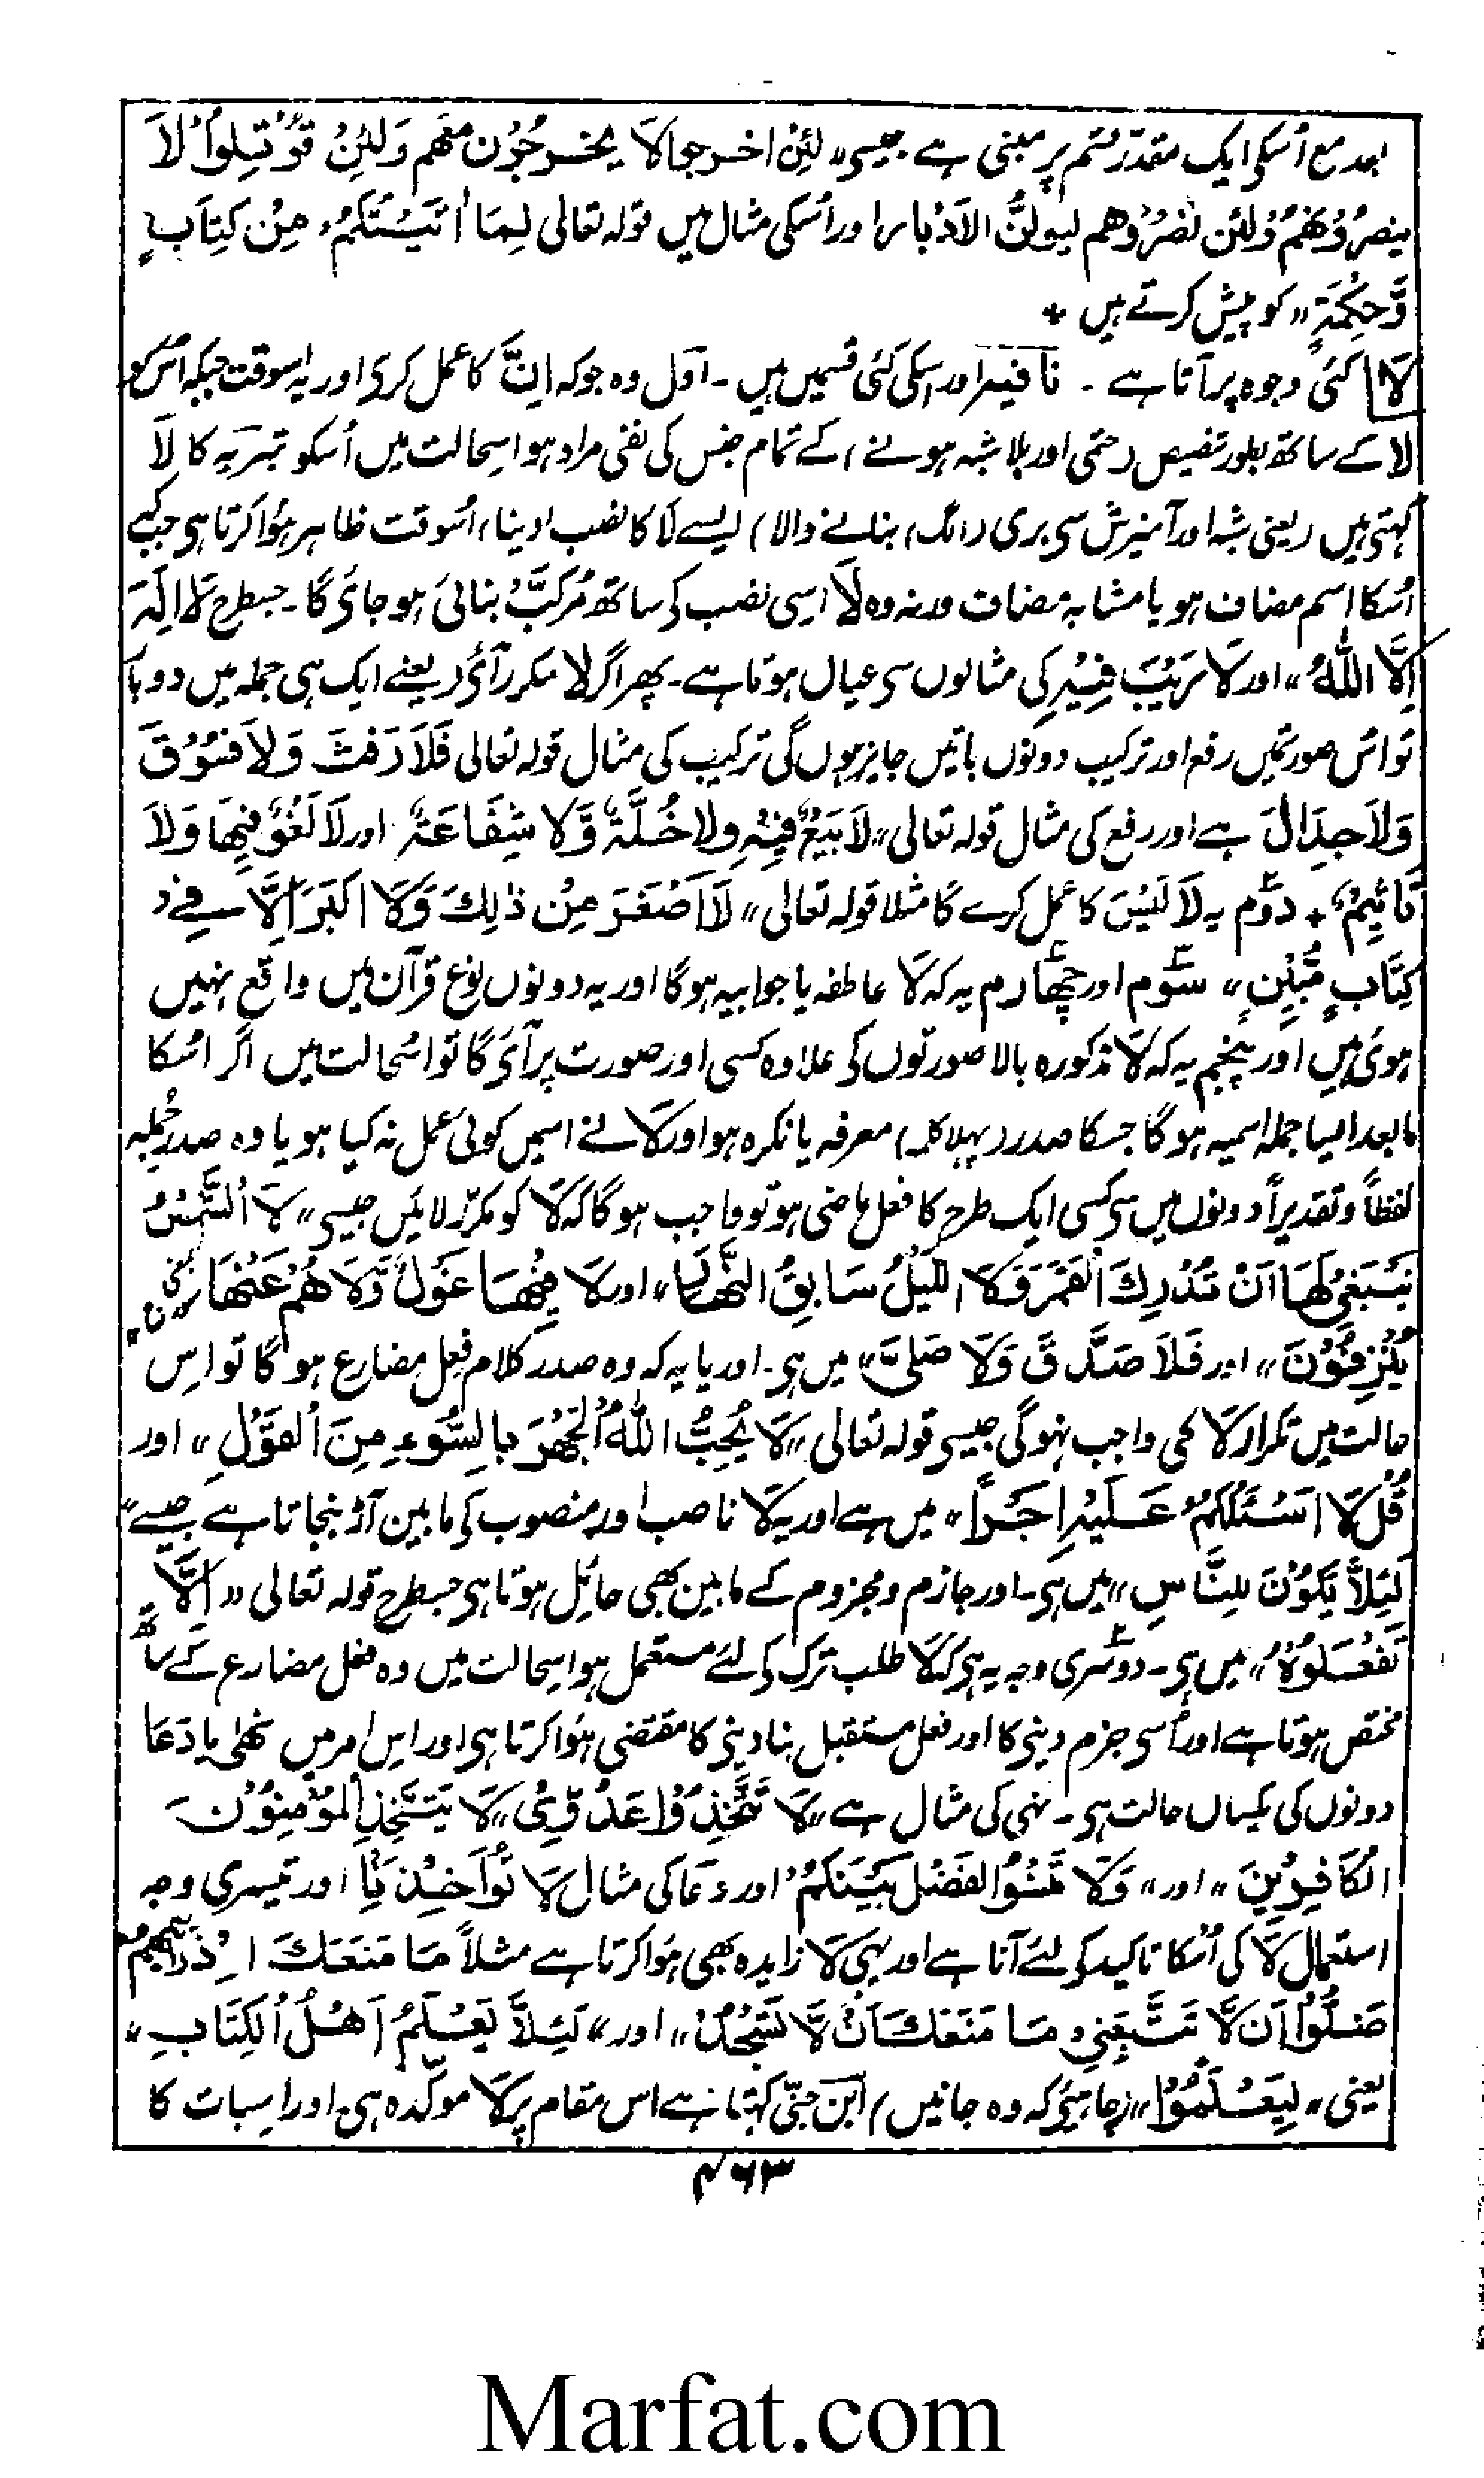 بعد مع اُسکی ایک مقدّر قسم پر مبنی ہے جیسے "لَئِنْ اخرجوا لَا یَخْرجُوْن مَعَهم وَلَئِنْ قُوْتِلُوْا لَا
ینصرُوْنَهُمْ وَلَئِن نَصَرُوْهم لیولُنَّ الاَدْبار" اور اُسکی مثال میں قولہ تعالی لِمَا اٰتَیْتُکُمْ مِنْ کِتَابٍ
وَّحِکْمَةٍ" کو پیش کرتے ہیں *
لَا کئی وجوہ پر آتا ہے ۔ نافیہ اور اسکی کئی قسمیں ہیں ۔ اَوّل وہ جو کہ اِنَّ کا عمل کری اور یہ اسوقت جبکہ اُس کو
لا کے ساتھ بطور تنصیص (حتمی اور بلا شبہ ہونے) کے تمام جنس کی نفی مراد ہو اسحالت میں اُسکو تبریہ کا لَا
کہتی ہیں (یعنی شبہ اور آمیزش سی بری (الگ) بنانے والا) ایسے لَا کا نصب (دینا) اُسوقت ظاہر ہؤا کرتا ہی جبکے
اُسکا اسم مضاف ہو یا مشابہ مضاف ورنہ وہ لَا اسی نصب کی ساتھ مُرکّب بنائیَ ہو جائیگا ۔ جسطرح لَا اِلٰہَ
اِلَّا اللّٰہُ" اور لَا رَیْبَ فِیْہِ کی مثالوں سی عیاں ہوتا ہے ۔ پھر اگر لا مکرر آئے (یعنے ایک ہی جملہ میں دو بار)
تو اس صورتمیں رفع اور ترکیب دونوں باتیں جایز ہوں گی ترکیب کی مثال قولہ تعالی فَلَا رَفَثَ وَلَا فُسُوْقَ
وَلَا جِدَالَ ہے اور رفع کی مثال قولہ تعالی "لَا بَیْعٌ فِیْہِ وَلا خُلَّۃٌ وَّلَا شَفَاعَۃٌ اور لَا لَغْوٌ فِیْهَا وَلَا
تَاثِیْمٌ * دوّم یہ لَا لَیْسَ کا عمل کرے گا مثلا قولہ تعالی "لَا اَصْغَرَ مِنْ ذٰلِکَ وَلَا اَکْبَرَ اِلَّا فِیْ
کِتَابٍ مُّبِیْنٍ" سوّم اور چہارم یہ کہ لَا عاطفہ یا جوابیہ ہوگا اور یہ دونوں نوع قرآن میں واقع نہیں
ہوئی ہیں اور پنجم یہ کہ لَا مذکورہ بالا صورتوں کی علاوہ کسی اور صورت پر آئے گا تو اسحالت میں اگر اُسکا
مابعد ایسا جملہ اسمیہ ہوگا جسکا صدر (پہلا کلمہ) معرفہ یا نکرہ ہو اور لَا نے اسمیں کوئی عمل نہ کیا ہو یا وہ صدر جملہ
لفظاً و تقدیراً دونوں میں سی کسی ایک طرح کا فعل ماضی ہو تو واجب ہوگا کہ لَا کو مکرّر لائیں جیسی "لَا الشَّمْسُ
یَنْبَغِیْ لَهَا اَنْ تُدْرِکَ الْقَمَرَ وَلَا اللَّیْلُ سَابِقُ النَّهَارِ" اور لَا فِیْهَا غَوْلٌ وَّلَا هُمْ عَنْهَا
یُنْزِفُوْنَ" اور فَلَا صَدَّقَ وَلَا صَلّٰی" میں ہی ۔ اور یا یہ کہ وہ صدر کلام فعل مضارع ہوگا تو اس
حالت میں تکرار لَا کی واجب نہوگی جیسی قولہ تعالی "لَا یُحِبُّ اللّٰہُ الْجَهْرَ بِالسُّوْءِ مِنَ الْقَوْلِ" اور
قُلْ لَا اَسْئَلُکُمْ عَلَیْہِ اَجْراً" میں ہے اور یہ لَا ناصب اور منصوب کی مابین آڑ بنجاتا ہے جیسے"
لِئَلَّا یَکُوْنَ لِلنَّاسِ" میں ہی ۔ اور جازم و مجزوم کے مابین بھی حائل ہوتا ہی جسطرح قولہ تعالی "اِلَّا
تَفْعَلُوْہُ" میں ہی ۔ دوسری وجہ یہ ہی کہ لَا طلب ترک کی لئے مستعمل ہو اسحالت میں وہ فعل مضارع کے ساتھ
مختص ہوتا ہے اور اُسی جزم دینی کا اور فعل مستقبل بنا دینی کا مقتضی ہؤا کرتا ہی اور اس امر میں نھی یا دَعَا
دونوں کی یکساں حالت ہی ۔ نہی کی مثال ہے "لَا تَتَّخِذُوْا عَدُوِّیْ" "لَا یَتَّخِذِ الْمُؤْمِنُوْنَ
الْکَافِرِیْنَ" اور "وَلَا تَنْسَوُا الفَضْلَ بَیْنَکُمْ" اور دَعَا کی مثال لَا تُؤَاخِذْنَا" اور تیسری وجہ
استعمال لَا کی اُسکا تاکید کو لئے آنا ہے اور یہی لَا زایدہ بھی ہؤا کرتا ہے مثلاً مَا مَنَعَکَ اِذْ رَاَیْتَهُمْ
ضَلُّوْا اَن لَّا تَتَّبِعَنِ" مَا مَنَعَکَ اَنْ لَّا تَسْجُدَ" اور "لِئَلَّا یَعْلَمَ اَهْلُ الْکِتَابِ"
یعنی "لِیَعْلَمُوْا" (چاہئے کہ وہ جانیں) ابن جنّی کہتا ہے اس مقام پر لَا موکّدہ ہی اور اسبات کا
۴۶۳
Marfat.com